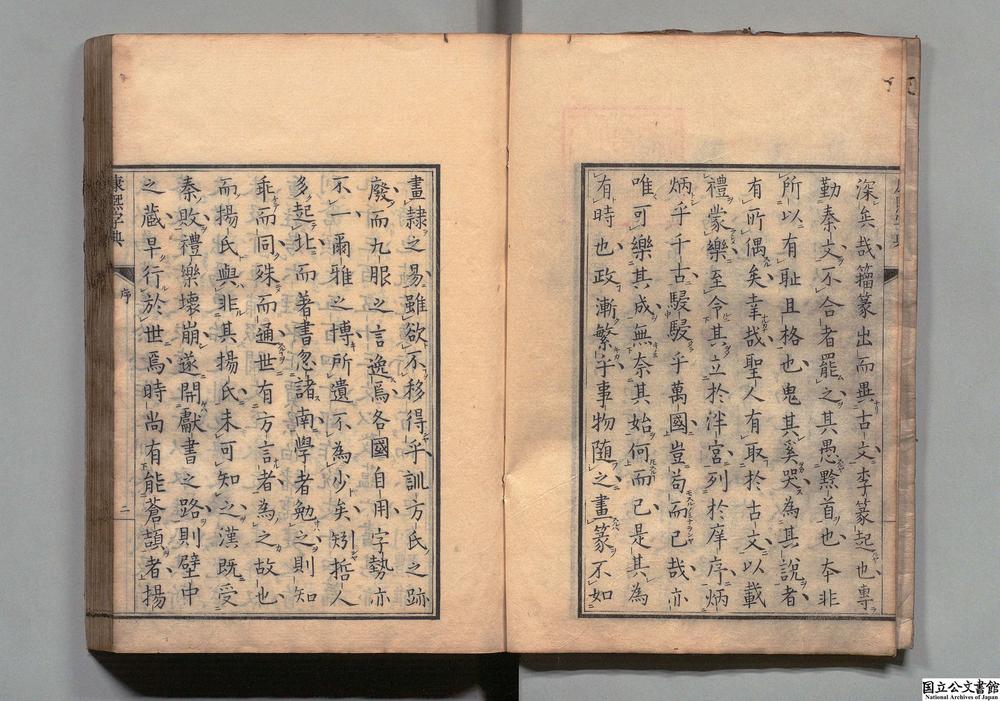 深矣哉籀篆出而異古文李篆起也專
勤秦文不合者罷之其愚黔首也本非
所以有耻且格也鬼其奚哭為其說者
有所偶矣幸哉聖人有取於古文以載
禮蒙樂至今其立於泮宮列於庠序炳
炳乎千古駸駸乎萬國豈苟而已哉亦
唯可樂其成無奈其始何而已是其為
有時也政漸繁乎事物随之畫篆不如
畫隷之易雖欲不移得乎訓方氏之跡
廢而九服之言逸焉各國自用字勢亦
不一爾雅之博所遺不為少矣矧哲人
多起北而著書忽諸南學者勉之則知
乖而同殊而通世有方言者為之故也
而揚氏與非其揚氏未可知之漢既受
秦敗禮樂壞崩遂開獻書之路則壁中
之蔵早行於世焉時尚有能蒼頡者揚
康熙字典
序
二
国立公文書館
National Archives of Japan